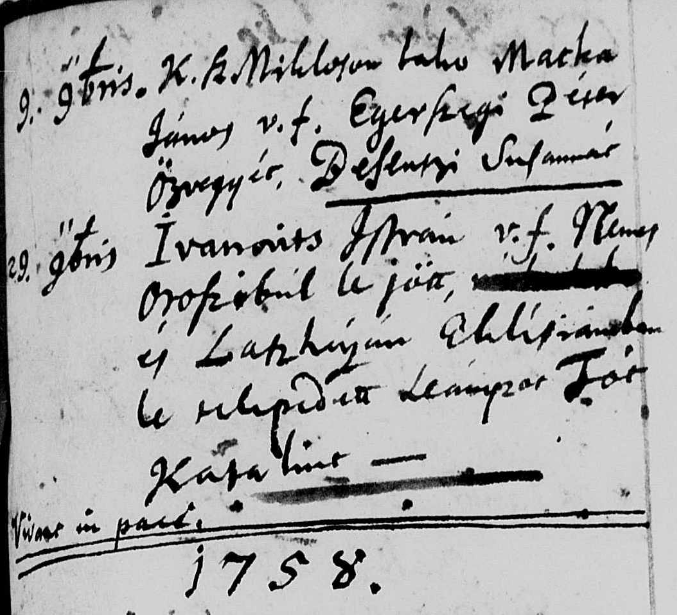 9. 9bris. K. Sz. Mikloson lako Macka
János v. f. Egerszegi Péter
Özvegyét, Desentzi Susannát
29. 9bris Ivanovits István v. f. Nemes
Oroszibúl le jött,
és Latzházán Eklésiánkban
le telepedett Leányzot Tót
Katalint —
Vivant in pace.
1758.